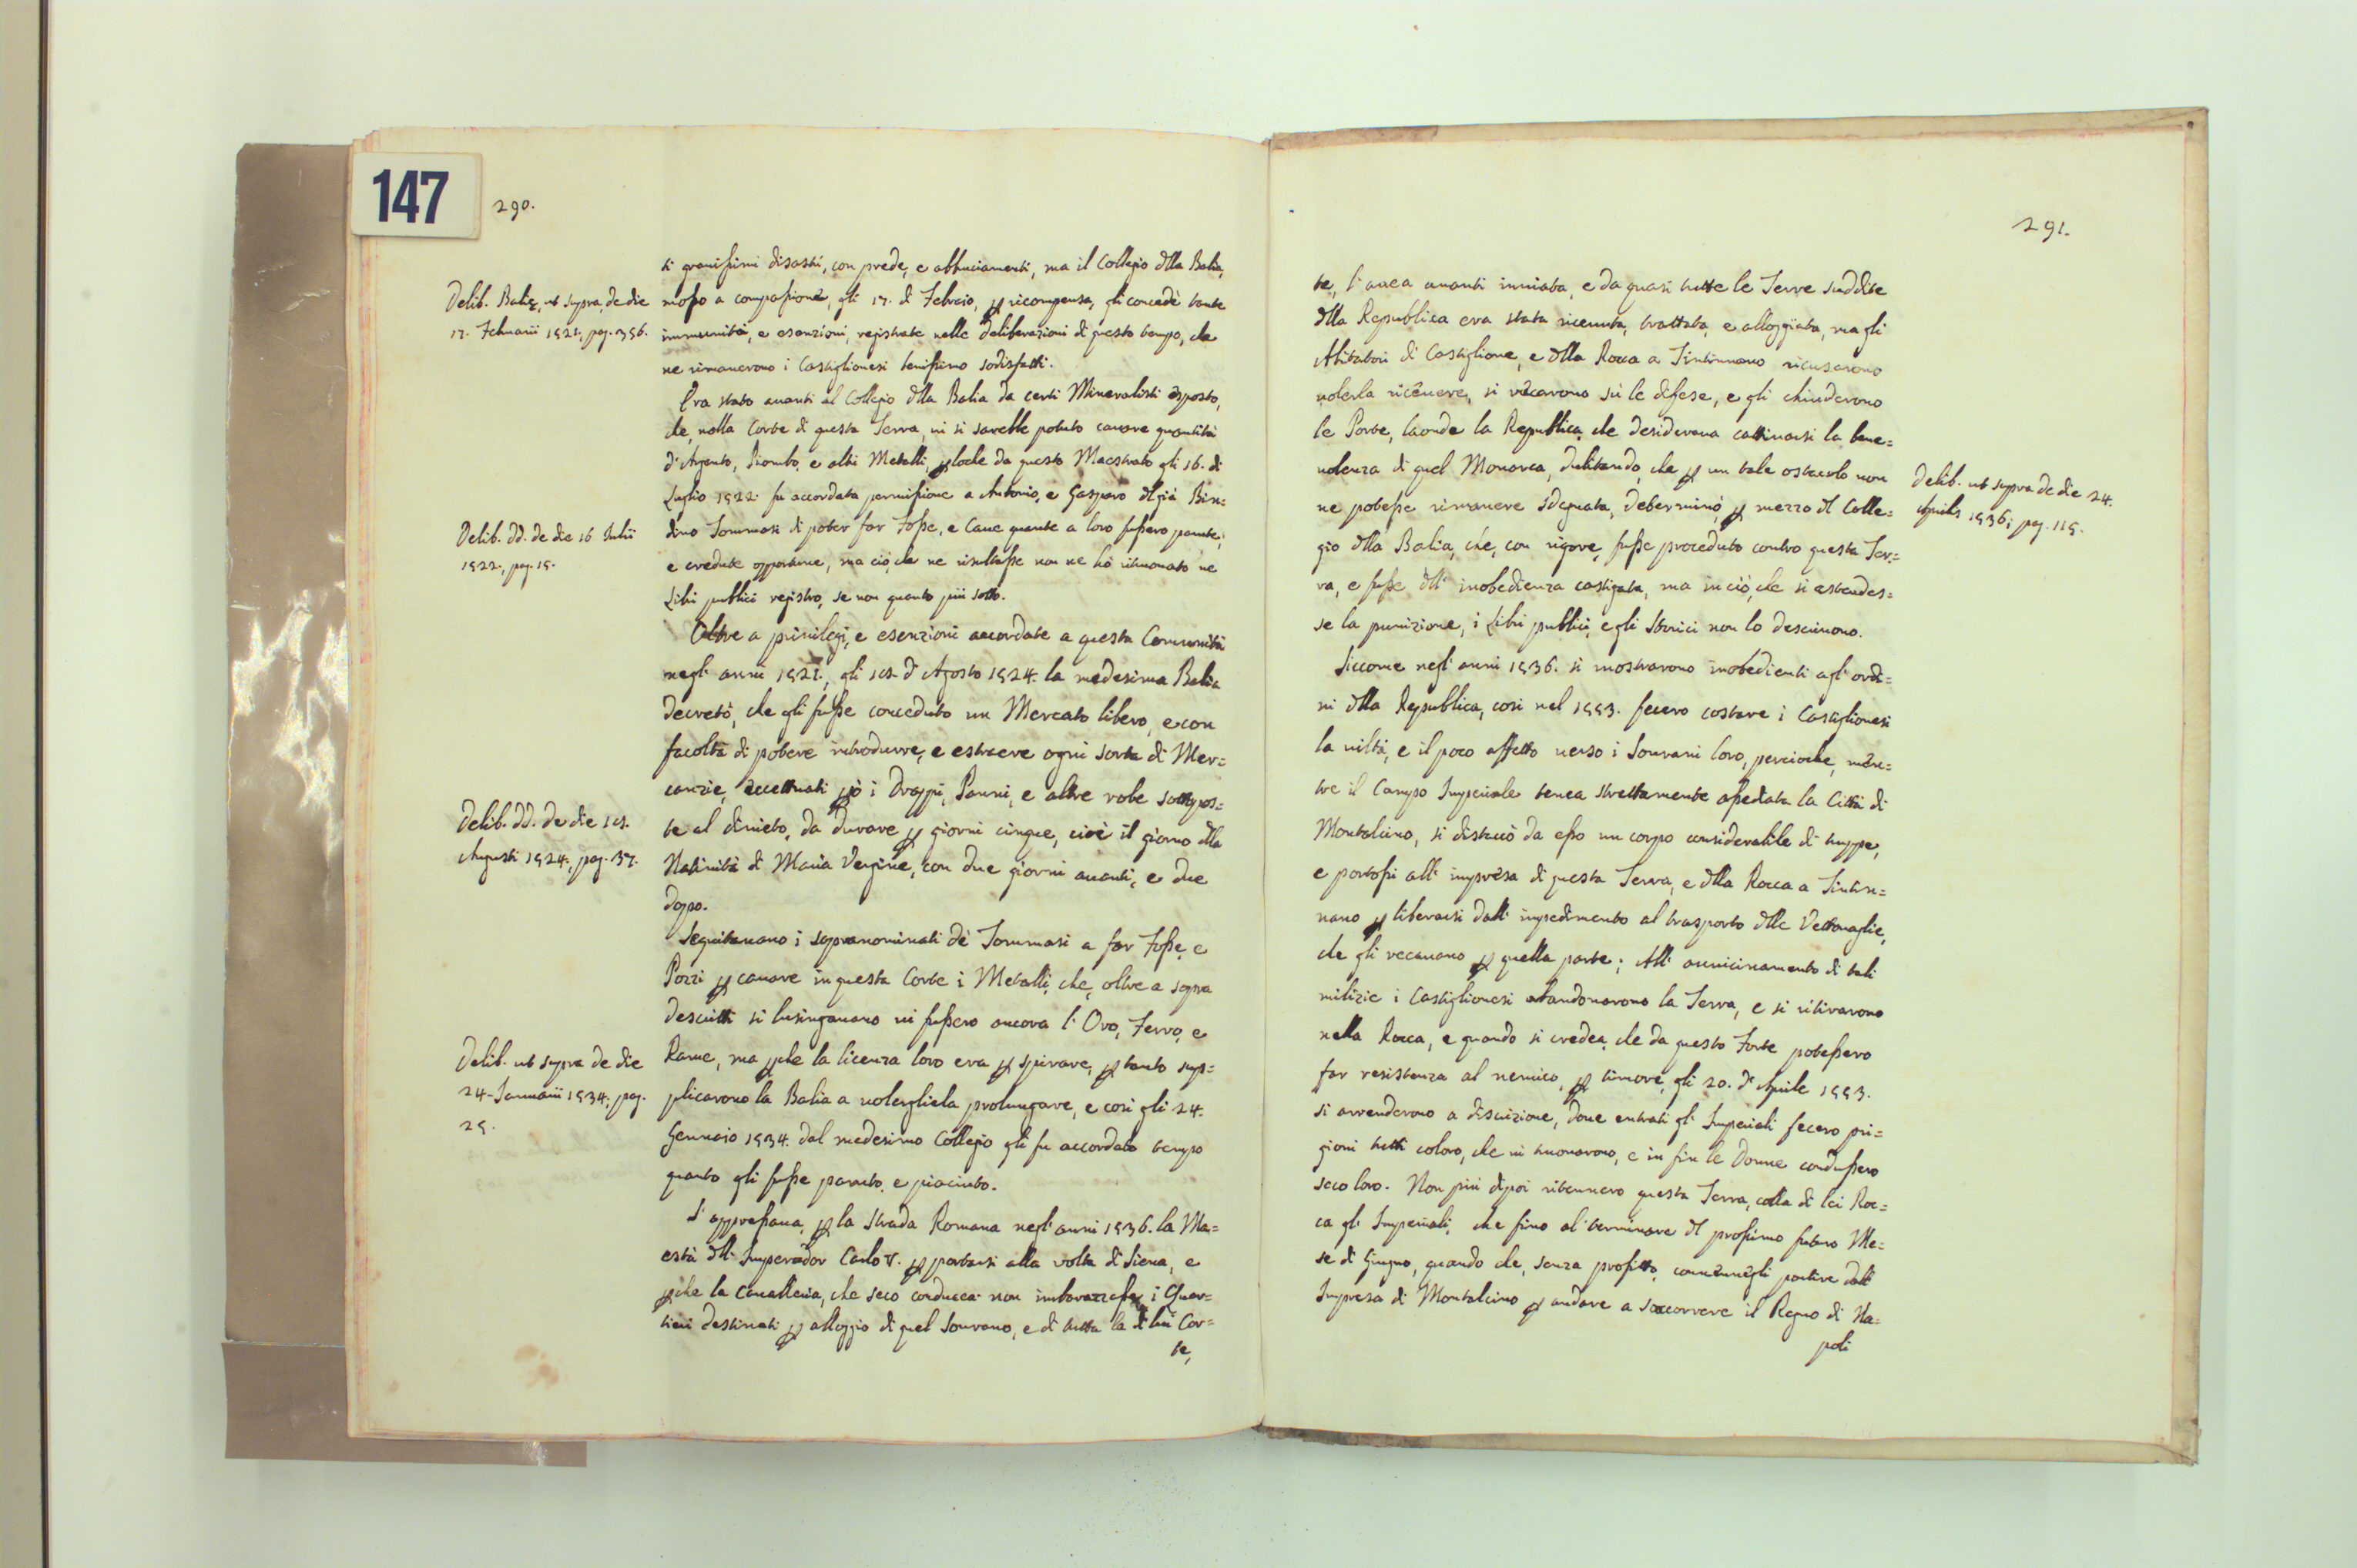 147
290.
ti grauissimi disastri, con prede, e abbruciamenti, ma il Collegio dlla Balia,
mosso a compassione, gli 17. di Febraio, p ricompensa, gli concedè tante
immunità, e esenzioni, registrate nelle deliberazioni di questo tempo, che
ne rimanerono i Castiglionesi benissimo sodisfatti.
Delib. Balię, ut supra, de die
17. Februarii 1521., pag. 356.
Era stato auanti al Collegio dlla Balia da certi Mineralisti esposto,
che, nella Corte di questa Terra, ui si sarebbe potuto cauare quantità
d'Argento, Piombo, e altri Metalli, p loche da questo Maestrato gli 16. di
Luglio 1522. fu accordata permissione a Antonio, e Gasparo dl già Bin=
dino Tommasi di poter far Fosse, e Caue quante a loro fussero parute,
e credute opportune, ma ciò, che ne risultasse non ne hò ritrouato ne
Libri publici registro, se non quanto più sotto.
Delib. dd. de die 16 Iulii
1522., pag. 15.
Oltre a priuilegi, e esenzioni accordate a questa Comunità
negli anni 1521., gli 15. d'Agosto 1524. la medesima Balia
decretò, che gli fusse conceduto un Mercato libero, e con
facoltà di potere introdurre, e estraere ogni sorta di Mer=
canzie, eccettuati pò i Drappi, Panni, e altre robe sottopos=
te al diuieto, da durare p giorni cinque, cioè il giorno dlla
Natiuità di Maria Vergine, con due giorni auanti, e due
dopo.
Delib. dd. de die 15.
Augusti 1524., pag. 37.
Seguitauano i sopranominati de Tommasi a far Fosse, e
Pozzi p cauare in questa Corte i Metalli, che, oltre a sopra
descritti si lusingauano ui fussero ancora l'Oro, Ferro, e
Rame, ma pche la licenza loro era p spirare, p tanto sup=
plicarono la Balia a uolergliela prolungare, e così gli 24.
Gennaio 1534. dal medesimo Collegio gli fu accordato tempo
quanto gli fusse paruto, e piaciuto.
Delib. ut supra de die
24. Ianuarii 1534., pag.
25.
S'appressaua, p la Strada Romana negl'anni 1536. la Ma=
està dll'Imperador Carlo V. p portarsi alla volta di Siena, e
pche la Caualleria, che seco conducea non imbarazzasse i Quar=
tieri destinati p alloggio di quel Sourano, e di tutta la di lui Cor=
te,
291.
te, l'auea auanti inuiata, e da quasi tutte le Terre suddite
dlla Republica era stata riceuuta, trattata, e alloggiata, ma gli
Abitatori di Castiglione, e dlla Rocca a Tintinnano ricusarono
uolerla riceuere, si recarono sù le difese, e gli chiuderono
le Porte, laonde la Republica, che desideraua cattiuarsi la bene=
uolenza di quel Monarca, dubitando, che p un tale ostacolo non
ne potesse rimanere sdegnata, determinò, p mezzo dl Colle=
gio dlla Balia, che, con rigore, fusse proceduto contro questa Ter=
ra, e fusse dll'inobedienza castigata, ma in ciò, che si estendes=
se la punizione, i Libri publici, e gli Storici non lo descriuono.
Delib. ut supra de die 24.
Aprilis 1536., pag. 115.
Siccome negl'anni 1536. si mostrarono inobedienti agl'ordi=
ni dlla Republica, così nel 1553. fecero costare i Castiglionesi
la uiltà, e il poco affetto uerso i Sourani loro, percioche, men=
tre il Campo Imperiale tenea strettamente assediata la Città di
Montalcino, si distaccò da esso un corpo considerabile di truppe,
e portossi all'impresa di questa Terra, e dlla Rocca a Tintin=
nano p liberarsi dall'impedimento al trasporto dlle Vettouaglie,
che gli recauano p quella parte; All'auuicinamento di tali
milizie i Castiglionesi abandonarono la Terra, e si ritirarono
nella Rocca, e quando si credea, che da questo Forte potessero
far resistenza al nemico, p timore, gli 20. d'Aprile 1553.
si arrenderono a discrizione, doue entrati gl'Imperiali fecero pri=
gioni tutti coloro, che ui trouarono, e in fin le Donne condussero
seco loro. Non più dipoi ritennero questa Terra, colla di lei Roc=
ca gl'Imperiali, che fino al terminare dl prossimo futuro Me=
se di Giugno, quando che, senza profitto, conuennegli partire dall'
Impresa di Montalcino p andare a soccorrere il Regno di Na=
poli